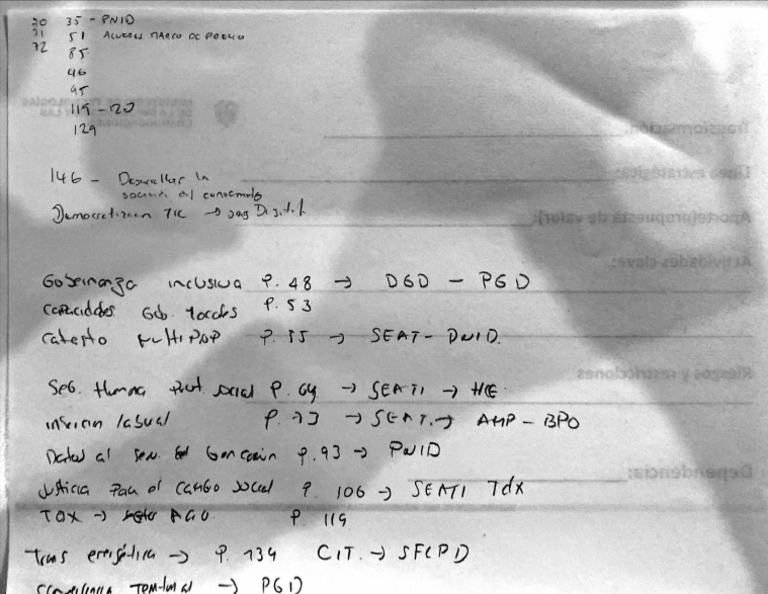 30 35 - PNID
31 51 Acuerdo Marco de Precio
32 85
46
95
119 - 120
129
146 - Desarrollar la
sociedad del conocimiento
Democratizacion TIC →
Gobernanza inclusiva P. 48 → DGD - PGD
Capacidades Gob. locales P. 53
Catastro MultiPOP P. 55 → SEAT - DNID.
Seg. Humana Prot. social P. 64 → SEATI → HCE
insercion laboral P. 73 → SEAT. → AMP - BPO
Datos al P. 93 → PNID
Justicia Para el Cambio Social P. 106 → SEATI Tdx
TDX → AGO P. 119
Trans energética → P. 134 CIT. → SFCPD
→ PGD
Transformación:
Línea estratégica:
Aporte(propuesta de valor):
Actividades clave:
Riesgos y restricciones
Dependencias: